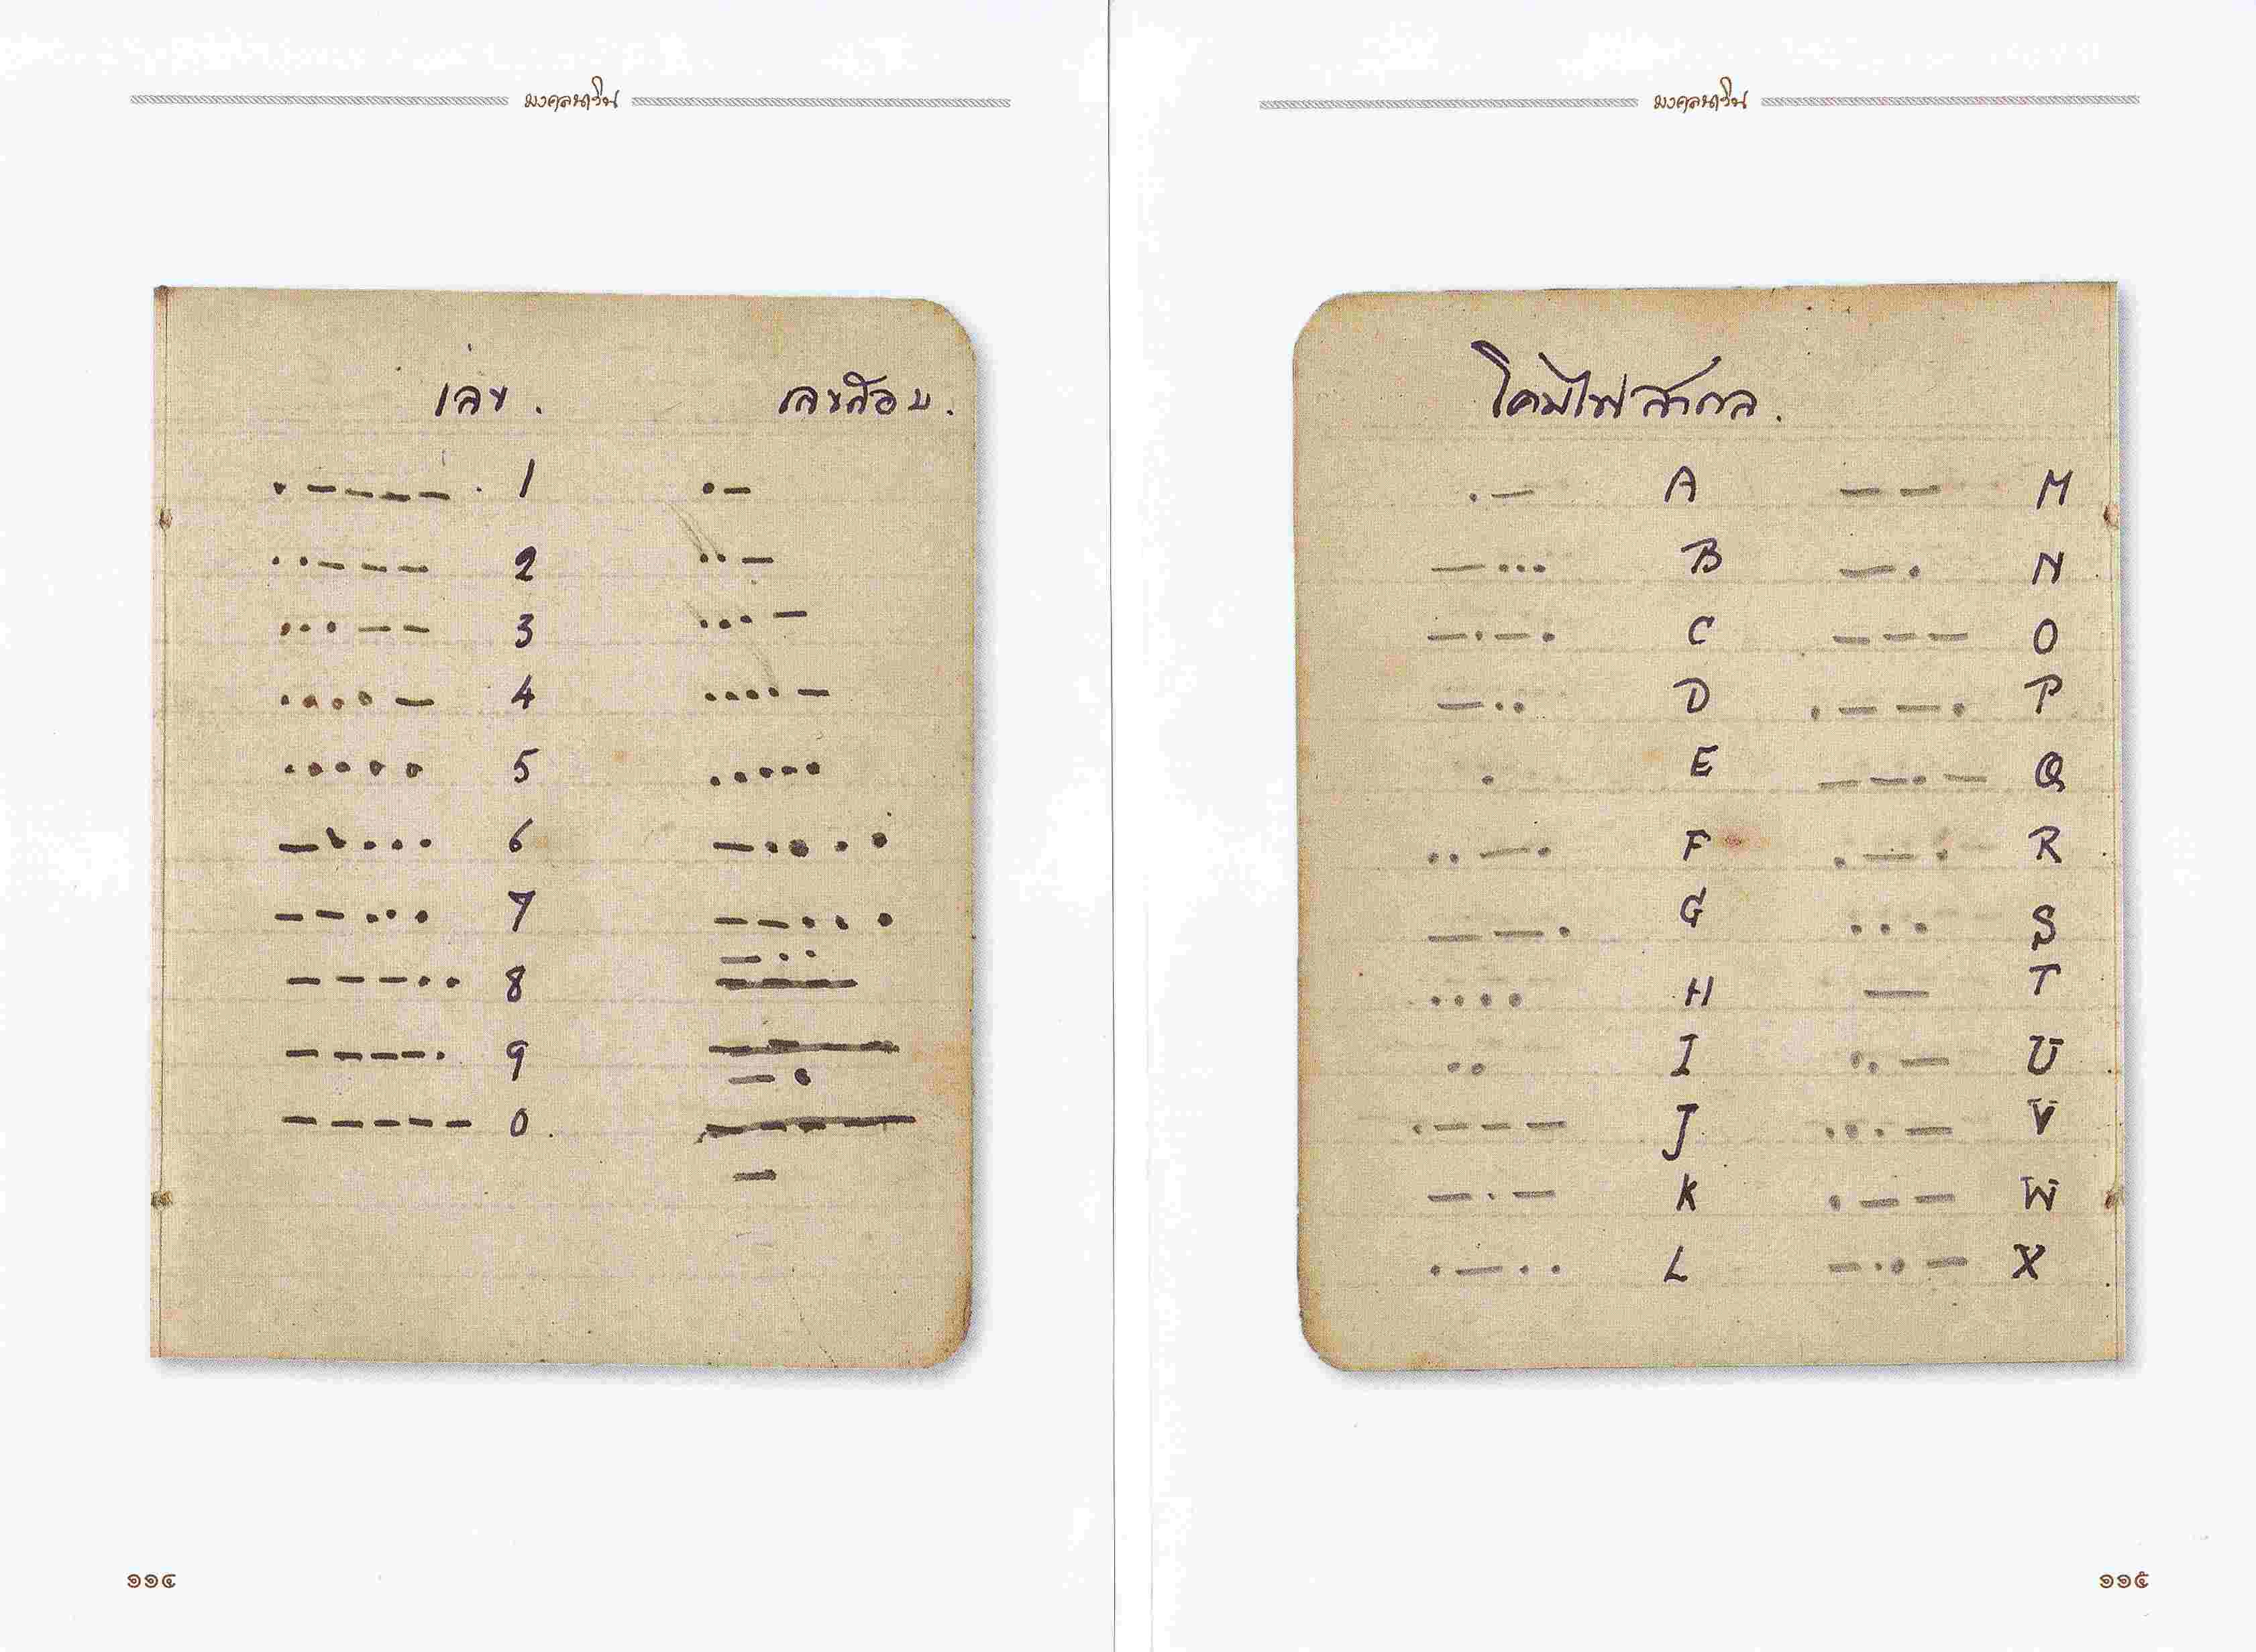 มงคลนาวิน
เลข. เลขสอบ.
. _ _ _ _ 1 . _
. . _ _ _ 2 . . _
. . . _ _ 3 . . . _
. . . . _ 4 . . . . _
. . . . . 5 . . . . .
_ . . . . 6 _ . . . .
_ _ . . . 7 _ _ . . .
_ _ _ . . 8 _ . .
_ _ _ _ . 9 _ .
_ _ _ _ _ 0. _
๑๑๔
มงคลนาวิน
โคมไฟสากล.
. _ A _ _ M
_ . . . B _ . N
_ . _ . C _ _ _ O
_ . . D . _ _ . P
. E _ _ . _ Q
. . _ . F . _ . R
_ _ . G . . . S
. . . . H _ T
. . I . . _ U
. _ _ _ J . . . _ V
_ . _ K . _ _ W
. _ . . L _ . . _ X
๑๑๕